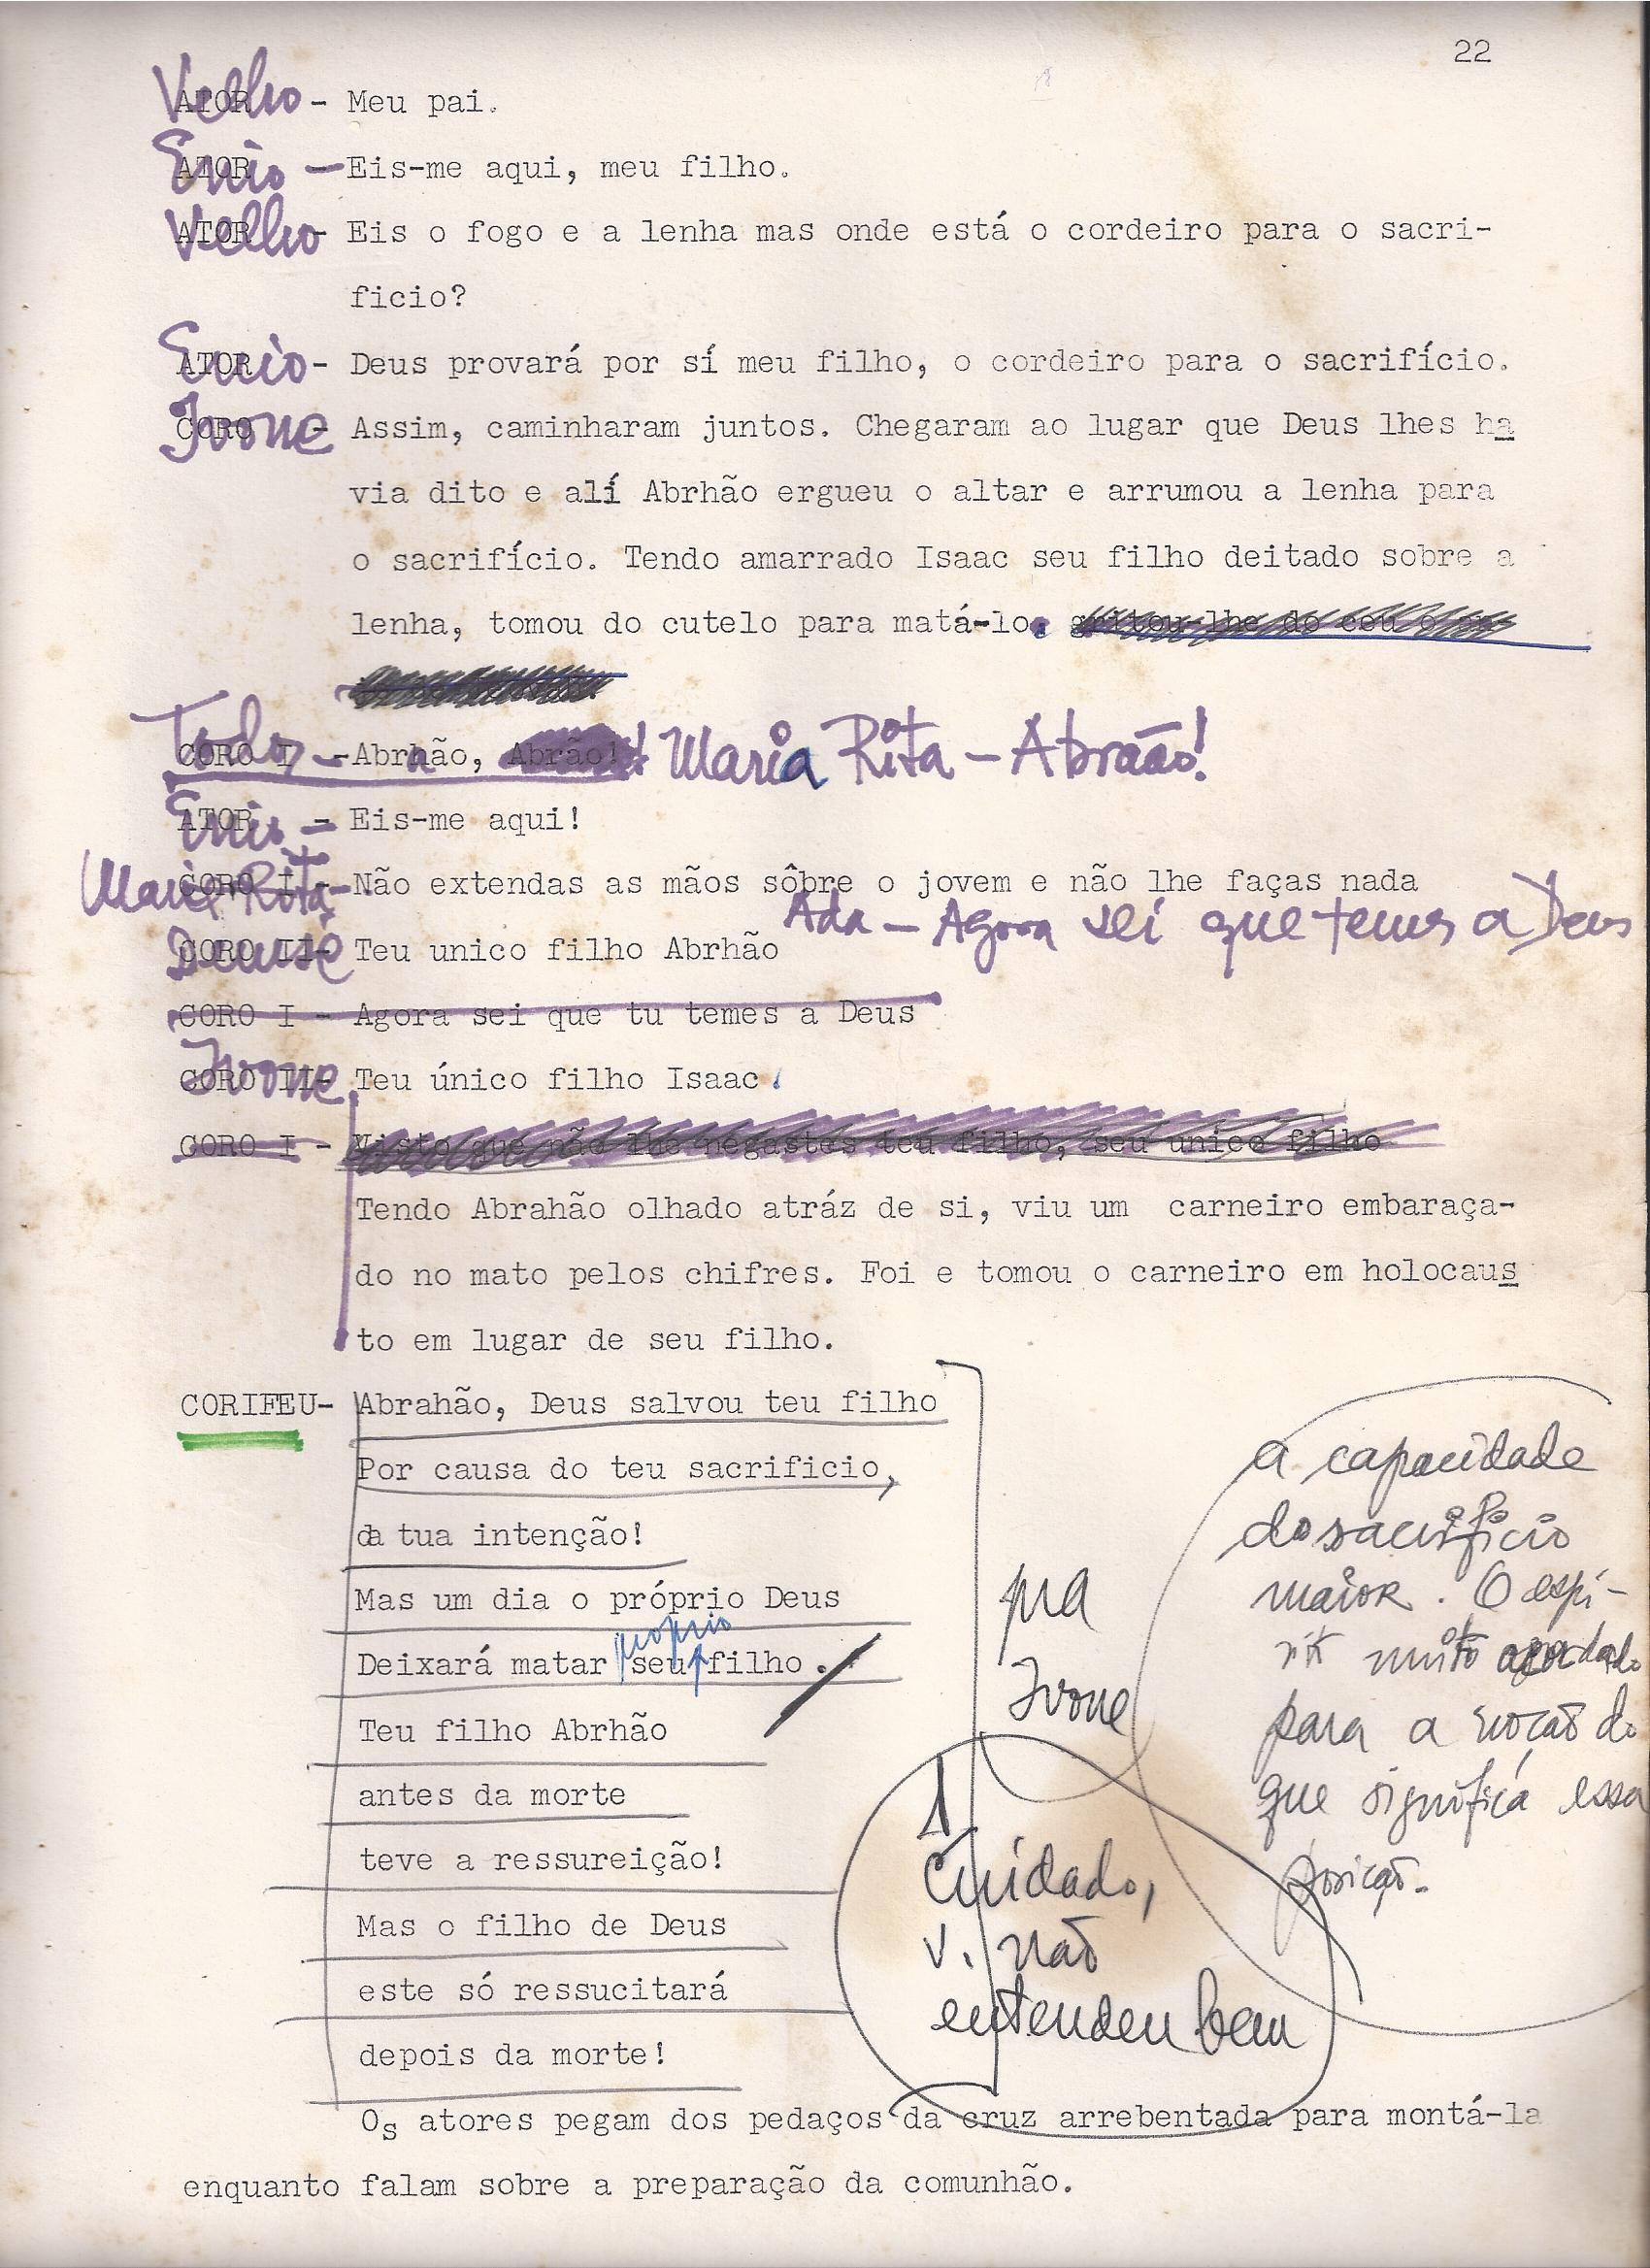 22
Velho ATOR - Meu pai.
Enio ATOR - Eis-me aqui, meu filho.
Velho ATOR - Eis o fogo e a lenha mas onde está o cordeiro para o sacri-
ficio?
Enio ATOR - Deus provará por sí meu filho, o cordeiro para o sacrifício.
Ivone CORO - Assim, caminharam juntos. Chegaram ao lugar que Deus lhes ha
via dito e alí Abrhão ergueu o altar e arrumou a lenha para
o sacrifício. Tendo amarrado Isaac seu filho deitado sobre a
lenha, tomou do cutelo para matá-lo. gritou-lhe do ceu o
Todos CORO I - Abrhão, Abrão! Maria Rita - Abraão!
Enio ATOR - Eis-me aqui!
Maria Rita CORO I - Não extendas as mãos sôbre o jovem e não lhe faças nada
Ada - Agora sei que temes a Deus
Denise CORO II- Teu unico filho Abrhão
CORO I - Agora sei que tu temes a Deus
Ivone CORO II- Teu único filho Isaac.
CORO I - Visto que não lhe negastes teu filho, seu unico filho
Tendo Abrahão olhado atráz de si, viu um carneiro embaraça-
do no mato pelos chifres. Foi e tomou o carneiro em holocaus
to em lugar de seu filho.
CORIFEU- Abrahão, Deus salvou teu filho
Por causa do teu sacrificio,
da tua intenção!
Mas um dia o próprio Deus
próprio
Deixará matar seu filho.
Teu filho Abrhão
antes da morte
teve a ressureição!
Mas o filho de Deus
este só ressucitará
depois da morte!
pra
Ivone
a capacidade
do sacrifício
maior. O espí-
rito muito
para a noção do
que significa essa
posição.
Cuidado,
v. não
entendeu bem
Os atores pegam dos pedaços da cruz arrebentada para montá-la
enquanto falam sobre a preparação da comunhão.